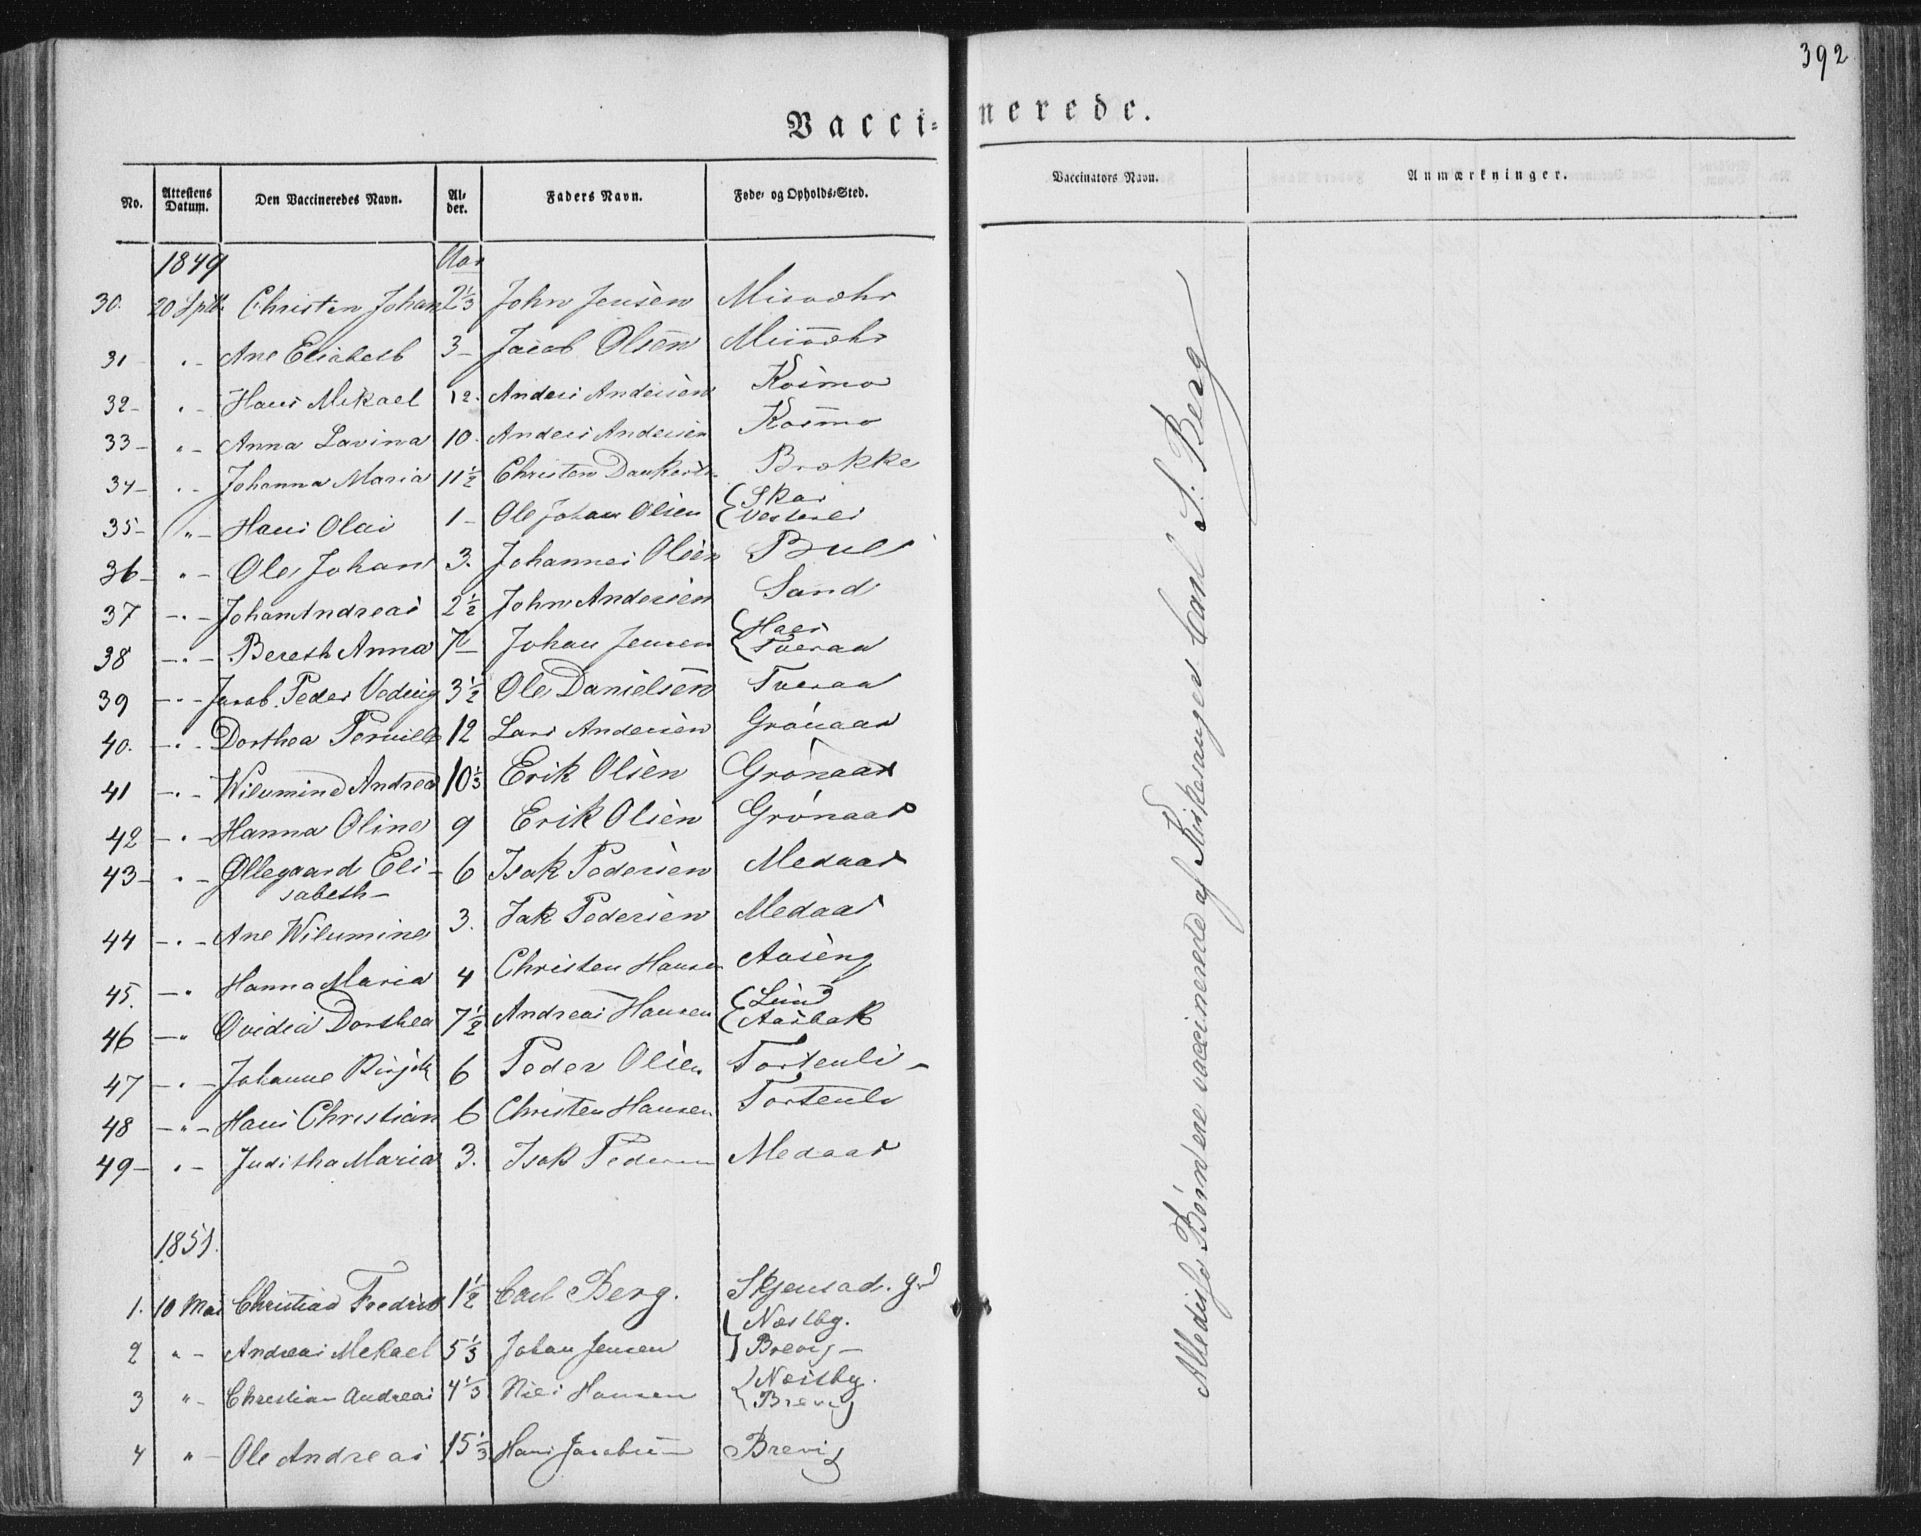 392
Vacci- nerede.
No. Attestens Datum. Den Vaccineredes Navn. Al- der. Faders Navn. Føde- og Opholds-Sted. Vaccinators Navn. Anmærkninger.
1849 Aar
30. 20 Sptb. Christen Johan 2 1/3 John Jensen Misvær
31 " - Ane Elisabeth 3 - Jacob Olsen Misvær
32 - " - Hans Mikael 12. Anders Andersen Kosmo
33 - " - Anna Lavina 10. Anders Andersen Kosmo
34 - " - Johanna Maria 11 1/2 Christen Brække
35 - " - Hans Olai 1 - Ole Johan Olsen { Skar
{ Vesterli
36 - " - Ole Johan 3. Johannes Olsen
37 - " - Johan Andreas 2 1/2 John Andersen Sand
38 - " - Bereth Anna 7 - Johan Jensen {
{ Tveraa
39 - " - Jacob Peder 3 1/2 Ole Danielsen Tveraa
40. - " - Dorthea Pernille 12 Lars Andersen Grønaas
41 - " - Wilumine Andrea 10 1/3 Erik Olsen Grønaas
42 - " - Hanna Oline 9 Erik Olsen Grønaas
43 - " - Øllegaard Eli- 6 Isak Pedersen Medaas
sabeth -
44 - " - Ane Wilumine 3. Isak Pedersen Medaas
45. - " Hanna Maria 4 Christen Hansen Aaseng
46 - " Ovidia Dorthea 7 1/2 Andreas Hansen { Lund
{ Aasbak
47 - " - Johanne 6 Peder Olsen Tortenli -
48 - " - Hans Christian 6 Christen Hansen Tortenli
49 - " - Juditha Maria 3. Isak Pedersen Medaas
1851.
1. 10 Mai Christian Fredrik 1 1/2 Carl Berg. Skjenstad. Gd
2 " - Andreas Mekael 5 1/3 Johan Jensen { Næstby.
} Brevig -
3 " - Christian Andreas 4 1/3 Niels Hansen { Næstby.
{ Brevig
4 " - Ole Andreas 15 1/3 Hans Jacobsen Brevig
Alle disse Børn ere vaccinerede af Kirkesanger Carl S. Berg